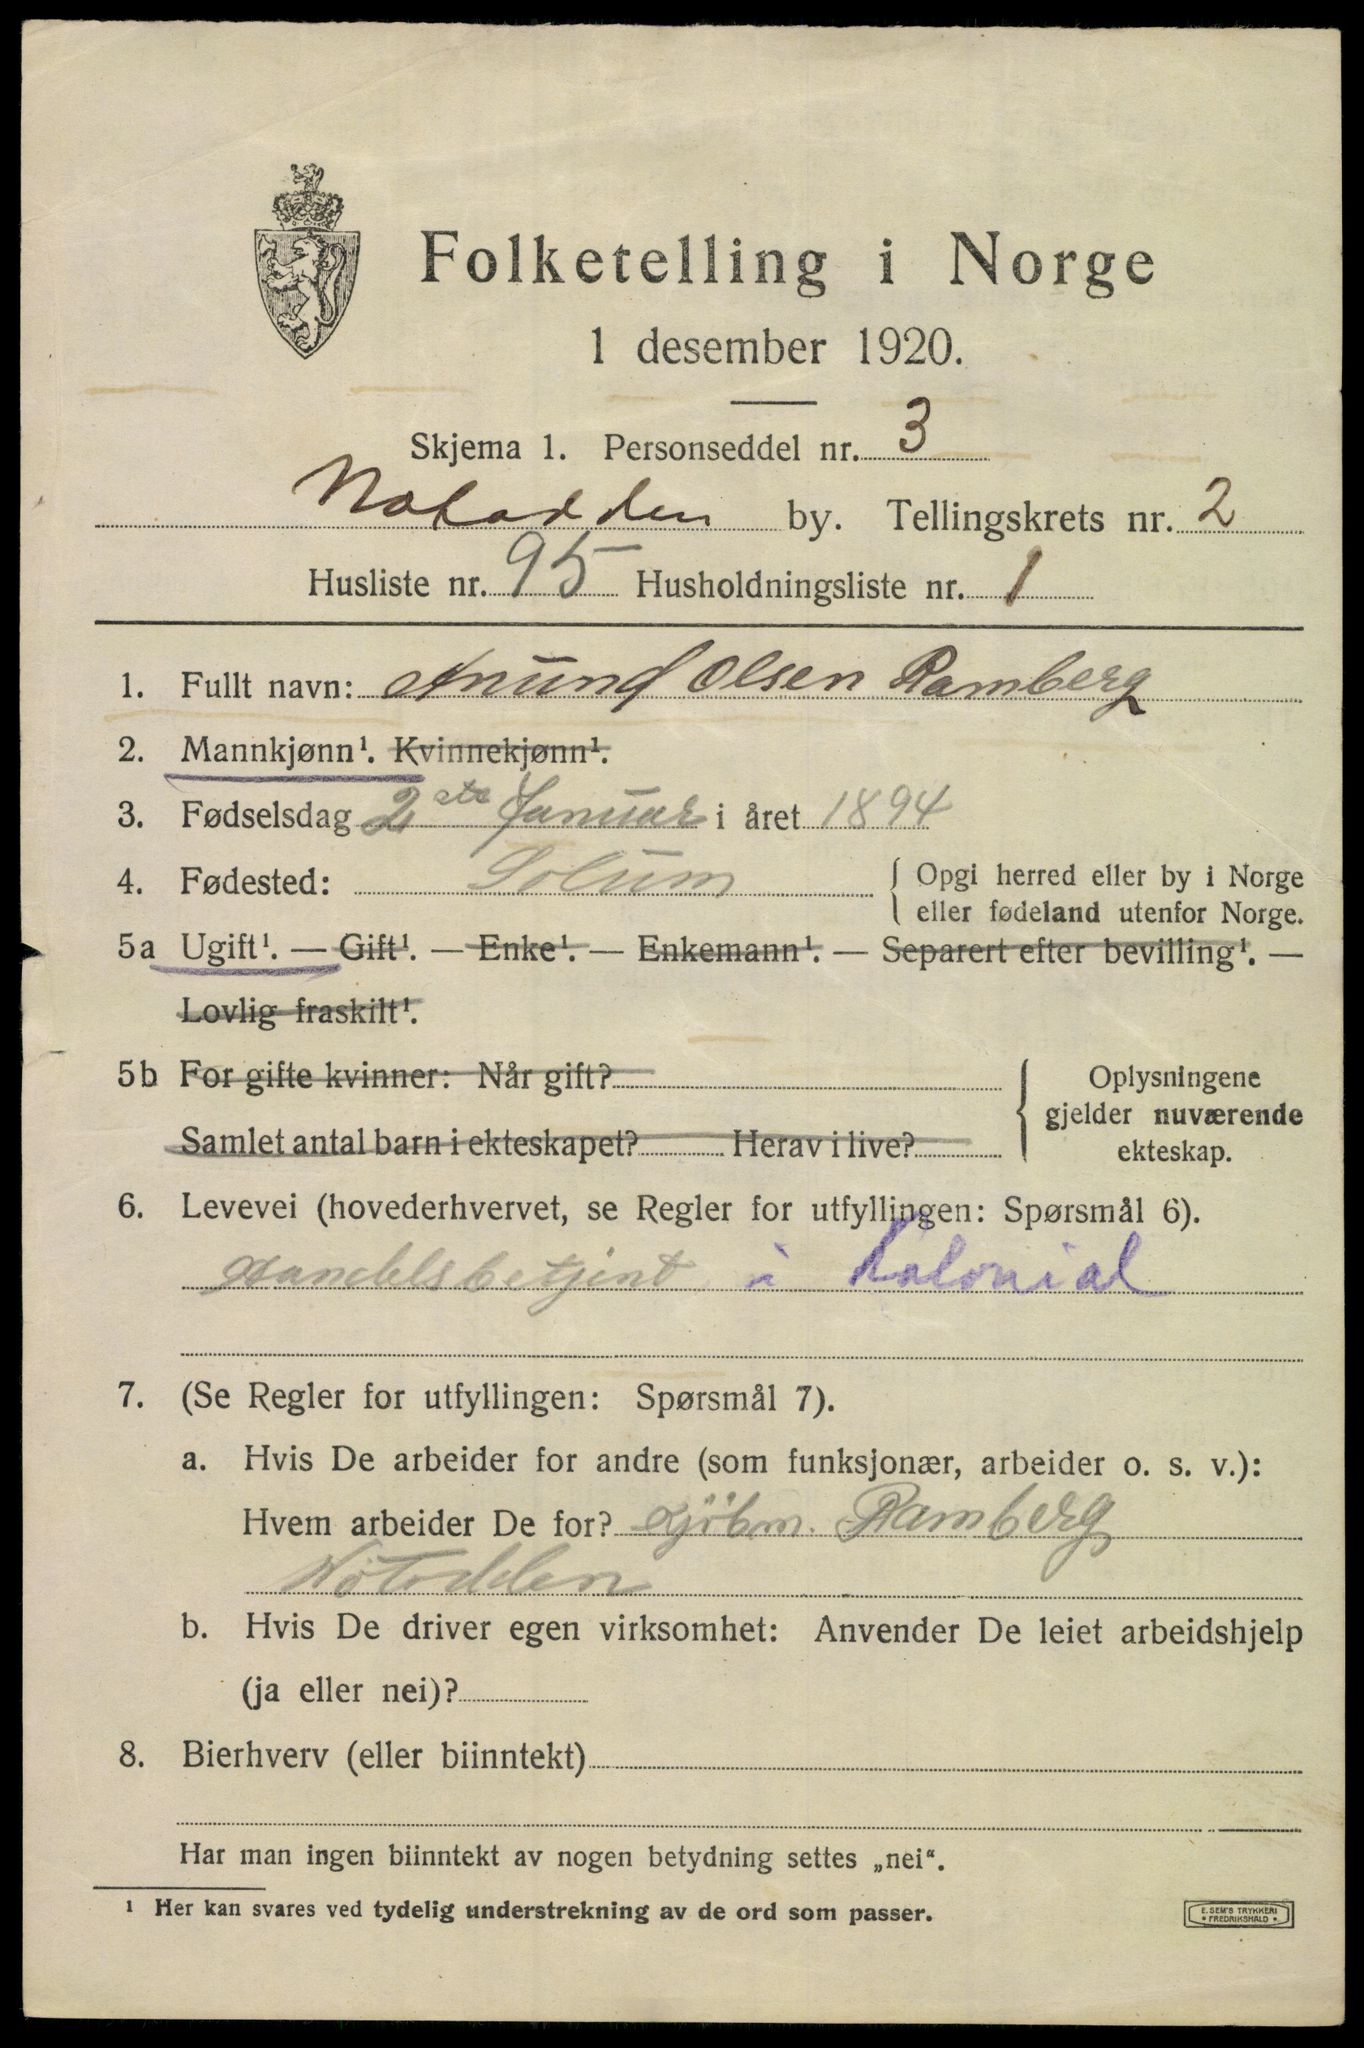 Folketelling i Norge
1 desember 1920.
Skjema 1. Personseddel nr. 3
Notodden by. Tellingskrets nr. 2
Husliste nr. 95 Husholdningsliste nr. 1
1. Fullt navn: Anund Olsen Ramberg
2. Mannkjønn¹. Kvinnekjønn¹.
3. Fødselsdag 2 Januar i året 1894
4. Fødested: Solum { Opgi herred eller by i Norge
eller fødeland utenfor Norge.
5a Ugift¹. — Gift¹. — Enke¹. — Enkemann¹. — Separert efter bevilling¹. —
Lovlig fraskilt¹.
5b For gifte kvinner: Når gift? { Oplysningene
gjelder nuværende
Samlet antal barn i ekteskapet? Herav i live?
ekteskap.
6. Levevei (hovederhvervet, se Regler for utfyllingen: Spørsmål 6).
Handelsbetjent i Kolonial
7. (Se Regler for utfyllingen: Spørsmål 7).
a. Hvis De arbeider for andre (som funksjonær, arbeider o. s. v.):
Hvem arbeider De for? Kjöbm. Ramberg
Notodden
b. Hvis De driver egen virksomhet: Anvender De leiet arbeidshjelp
(ja eller nei)?
8. Bierhverv (eller biinntekt)
Har man ingen biinntekt av nogen betydning settes „nei“.
¹ Her kan svares ved tydelig understrekning av de ord som passer.
E. SEM'S TRYKKERI
• FREDRIKSHALD •